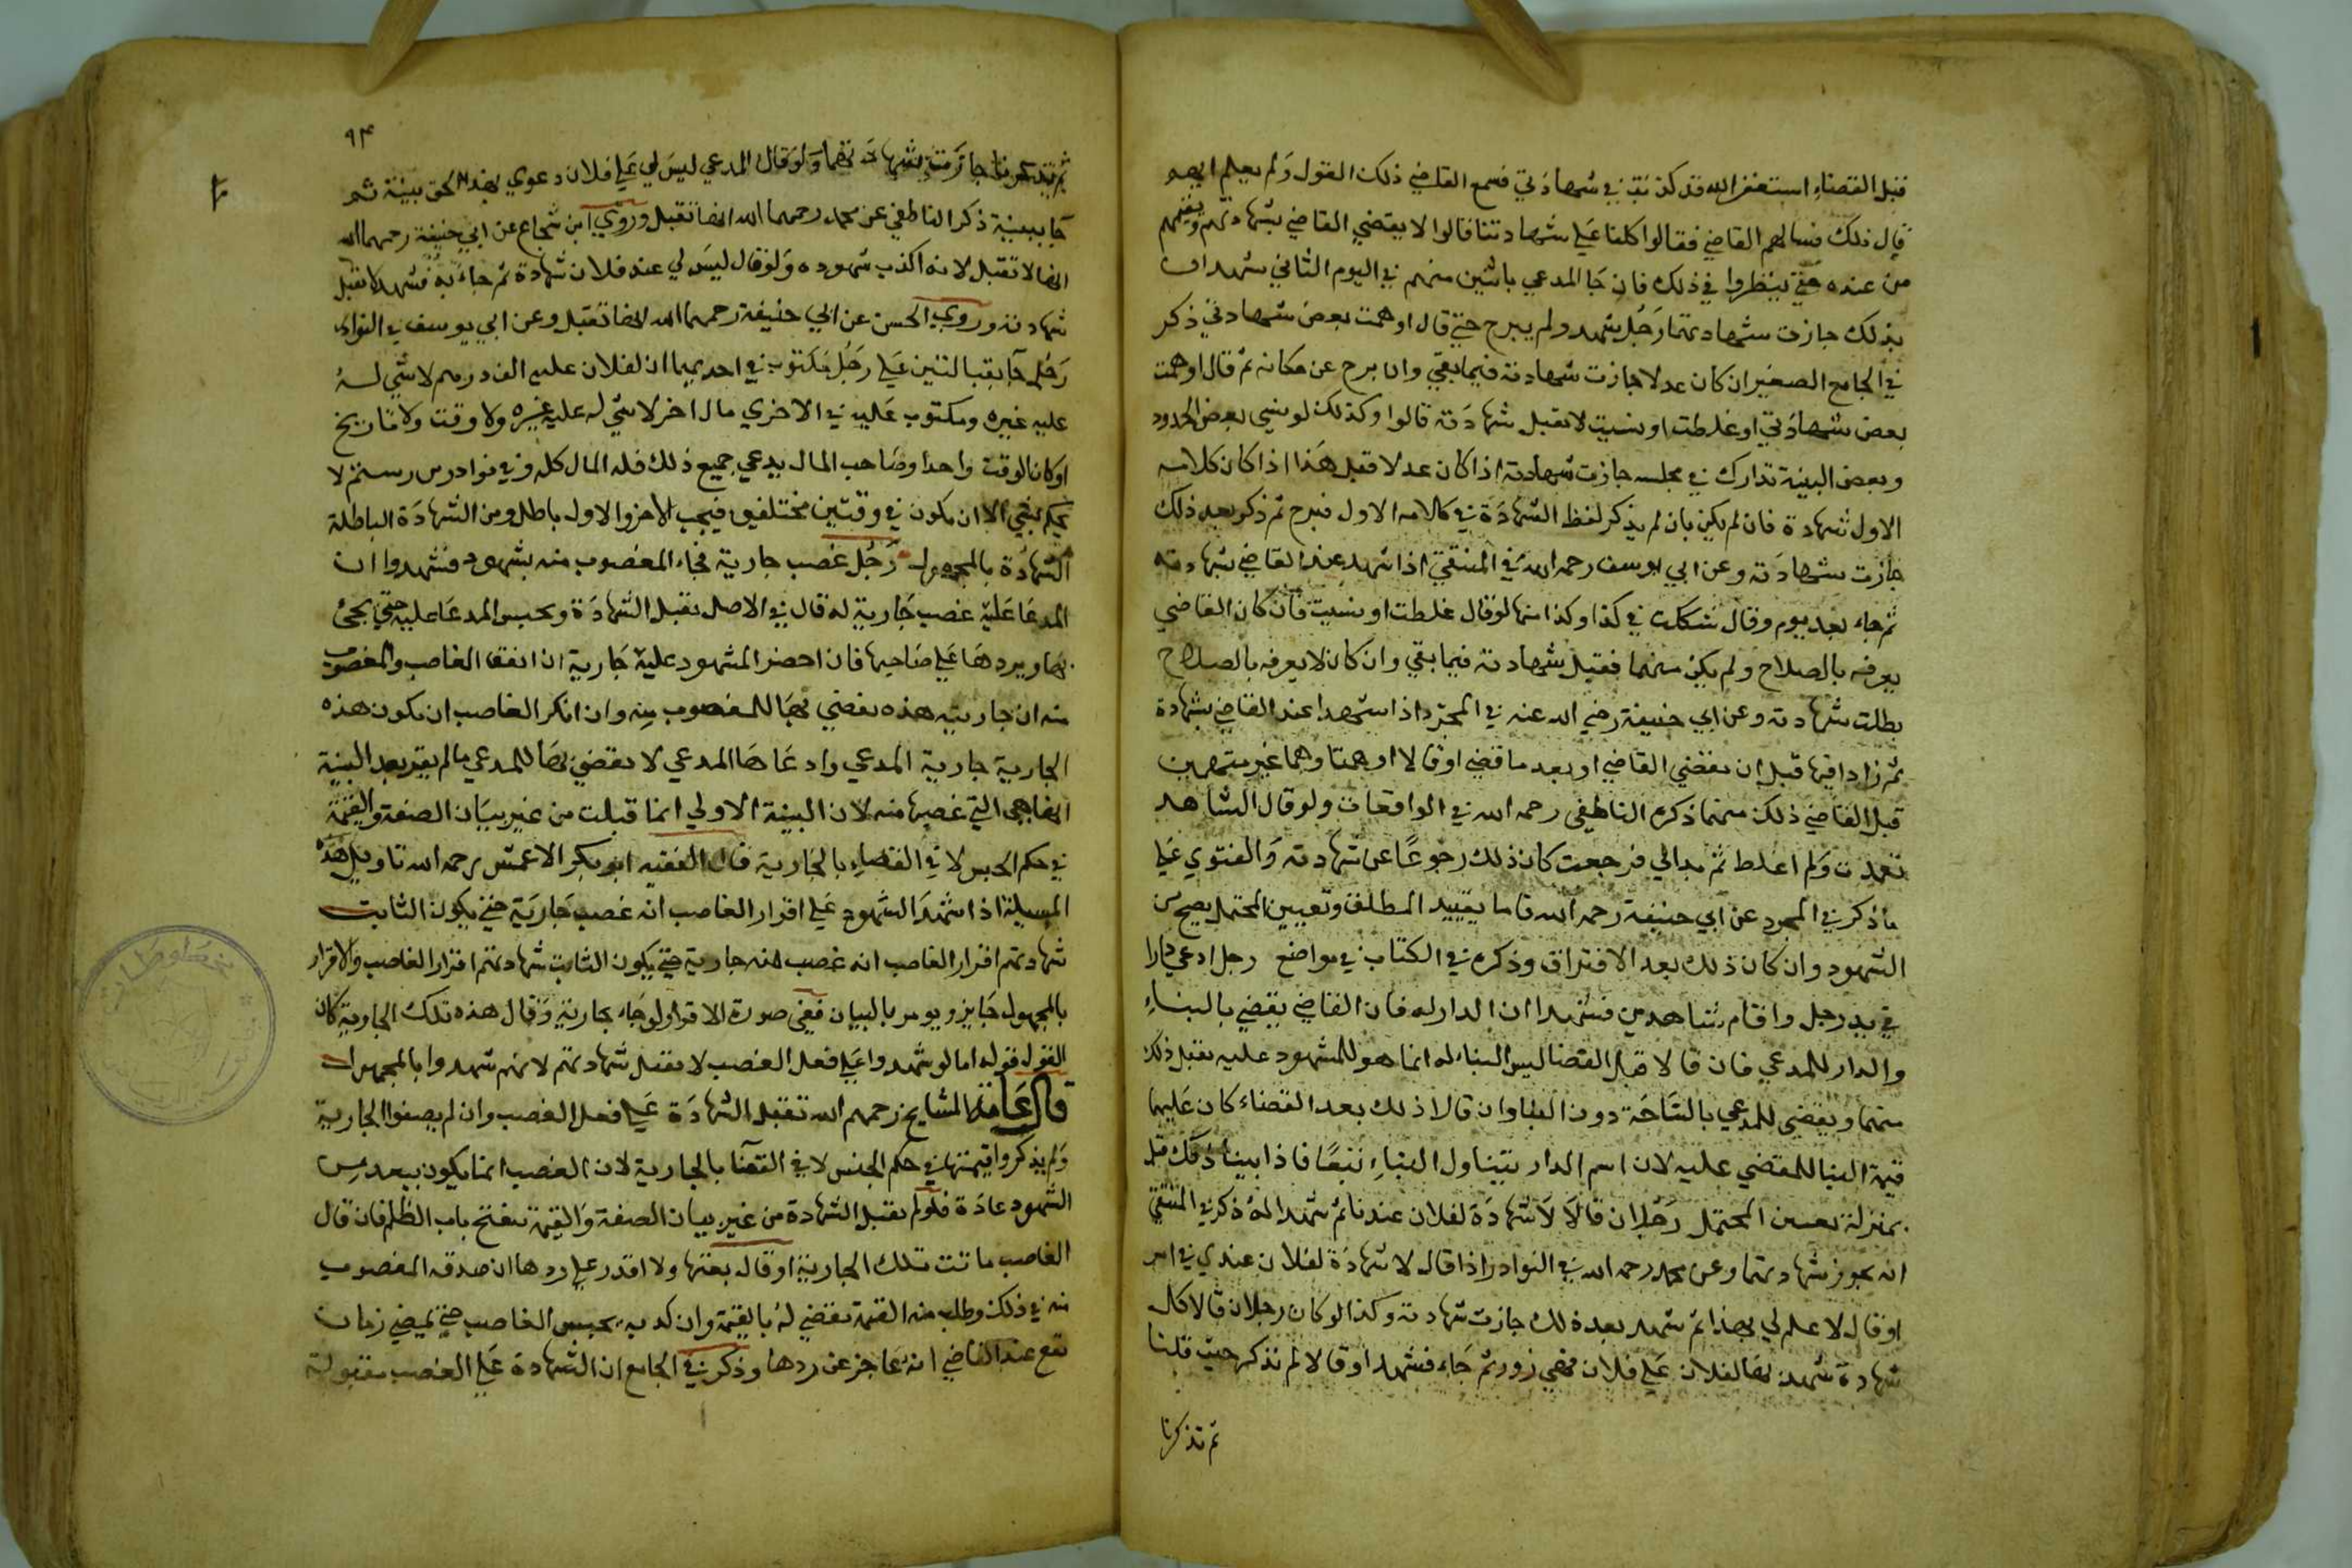 قبل القضاء استغفر الله قد كذبت في شهادتي فسمع القاضي ذلك القول ولم يعلم ايهم
قال ذلك فسالهم القاضي فقالوا كلنا على شهادتنا قالوا لا يقضي القاضي بشهادتهم ويقيمهم
من عنده حتى ينظروا في ذلك فان جا المدعي باثنين منهم في اليوم الثاني يشهدان
بذلك جازت شهادتهما رجل شهد ولم يبرح حتى قال اوهمت بعض شهادتي ذكر
في الجامع الصغير ان كان عدلا جازت شهادته فيما بقي وان برح عن مكانه ثم قال اوهمت
بعض شهادتي او غلطت او نسيت لا تقبل شهادته قالوا وكذلك لو نسي بعض الحدود
وبعض البينة تدارك في مجلسه جازت شهادته اذا كان عدلا قبل هذا اذا كان كلامه
الاول شهادة فان لم يكن بان لم يذكر لفظ الشهادة في كلامه الاول فبرح ثم ذكر بعد ذلك
جازت شهادته وعن ابي يوسف رحمه الله في المنتقى اذا شهد عند القاضي شهادته
ثم جاء بعد يوم وقال شككت في كذا وكذا منها لو قال غلطت او نسيت فان كان القاضي
يعرفه بالصلاح ولم يكن متهما فقبل شهادته فيما بقي وان كان لا يعرفه بالصلاح
بطلت شهادته وعن ابي حنيفة رضي الله عنه في المجرد اذا شهدا عند القاضي بشهادة
ثم زادا فيها قبل ان يقضي القاضي او بعد ما قضي او قالا اوهمنا وهما غير متهمين
قبل القاضي ذلك منهما ذكره الناطفي رحمه الله في الواقعات ولو قال الشاهد
تعمدت ولم اغلط ثم بدا لي فرجعت كان ذلك رجوعا عن شهادته والفتوي على
ما ذكر في المجرد عن ابي حنيفة رحمه الله فاما يقييد المطلق وتعيين المحتمل يصح من
الشهود وان كان ذلك بعد الافتراق وذكره في الكتاب في مواضع رجل ادعي دارا
في يد رجل واقام شاهدين فشهدا ان الدار له فان القاضي يقضي بالبناء
والدار للمدعي فان قالا قبل القضا ليس البناء له انما هو للمشهود عليه يقبل ذلك
منهما ويقضي للمدعي بالساحة دون البنا وان قالا ذلك بعد القضاء كان عليهما
قيمة البنا للمقضي عليه لان اسم الدار يتناول البناء تبعا فاذا بينا ذلك قبل
بمنزلة تعيين المحتمل رجلان قالا لا شهادة لفلان عندنا ثم شهدا له ذكر في المنتقي
انه يجوز شهادتهما وعن محمد رحمه الله في النوادر اذا قال لا شهادة لفلان عندي في امر
او قال لا علم لي بهذا ثم شهد بعد ذلك جازت شهادته وكذا لو كان رجلان قالا كل
شهادة شهدنا بها لفلان على فلان فهي زور ثم جاء فشهدا وقالا لم نذكر حيث قلنا
ثم تذكرنا
٩٣
ثم تذكرنا جازت شهادتهما ولو قال المدعي ليس لي على فلان دعوي بهذا الحق بينة ثم
جا ببينة ذكر الناطفي عن محمد رحمهما الله انها تقبل وروي ابن شجاع عن ابي حنيفة رحمهما الله
انها لا تقبل لانه اكذب شهوده ولو قال ليس لي عند فلان شهادة ثم جاء به فشهد لا تقبل
شهادته وروي الحسن عن ابي حنيفة رحمهما الله انها تقبل وعن ابي يوسف في النوادر
رجل جا بقبالتين على رجل مكتوب في احديهما ان لفلان عليه الف درهم لا شي له
عليه غيره ومكتوب عليه في الاخري مال اخر لا شي له عليه غيره ولا وقت ولا تاريخ
او كان الوقت واحدا وصاحب المال يدعي جميع ذلك فله المال كله وفي نوادر بن رستم لا
يحكم بشي الا ان يكون في وقتين مختلفين فيجب الاخر والاول باطل ومن الشهادة الباطلة
الشهادة بالمجهول رجل غصب جارية فجاء المغصوب منه بشهود فشهدوا ان
المدعا عليه غصب جارية له قال في الاصل تقبل الشهادة ويحبس المدعا عليه حتي يجئ
بها ويردها على صاحبها فان احضر المشهود عليه جارية ان اتفقا الغاصب والمغصوب
منه ان جاريته هذه يقضي بها للمغصوب منه وان انكر الغاصب ان يكون هذه
الجارية جارية المدعي وادعاها المدعي لا يقضي بها للمدعي ما لم يقم بعد البينة
انها هي التي غصبها منه لان البينة الاولي انما قبلت من غير بيان الصفة والقيمة
في حكم الحبس لا في القضاء بالجارية قال الفقيه ابو بكر الاعمش رحمه الله تاويل هذه
المسيلة اذا شهد الشهود على اقرار الغاصب انه غصب جارية حتى يكون الثابت
شهادتهم اقرار الغاصب انه غصب منه جارية حتى يكون الثابت شهادتهم اقرار الغاصب والاقرار
بالمجهول جايز ويومر بالبيان ففي صورة الاقرار لو جاء بجارية وقال هذه تلك الجارية كان
القول قوله اما لو شهدوا على فعل الغصب لا تقبل شهادتهم لانهم شهدوا بالمجهول
قال عامة المشايخ رحمهم الله تقبل الشهادة على فعل الغصب وان لم يصفوا الجارية
ولم يذكروا قيمتها في حكم الحبس لا في القضآ بالجارية لان الغصب انما يكون ببعد من
الشهود عادة فلو لم تقبل الشهادة من غير بيان الصفة والقيمة ينفتح باب الظلم فان قال
الغاصب ماتت تلك الجارية او قال بعتها ولا اقدر على ردها ان صدقه المغصوب
منه في ذلك وطلب منه القيمة يقضي له بالقيمة وان كذبه يحبس الغاصب حتى يمضي زمان
يقع عند القاضي انه عاجز عن ردها وذكر في الجامع ان الشهادة على الغصب مقبولة